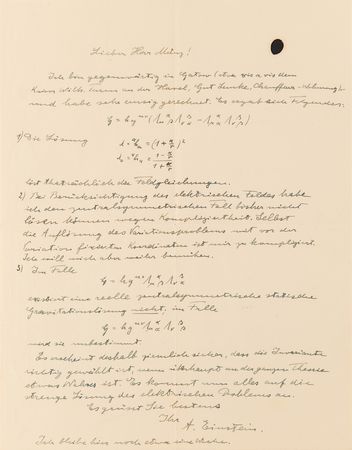 Lieber Herr Müntz!
Ich bin gegenwärtig in Gatow (etwa vis a vis dem
Kaiser Wilh. Turm an der Havel, Gut Lemke, Chauffeur-Wohnung)
und habe sehr emsig gerechnet. Es ergab sich Folgendes:
1) Die Lösung
löst thatsächlich die Feldgleichungen.
2) Bei Berücksichtigung des elektrischen Feldes habe
ich den zentralsymmetrischen Fall bisher nicht
lösen können wegen Kompliziertheit. Selbst
die Auflösung des Variationsproblems mit vor der
Variation fixierten Koordinaten ist mir zu kompliziert.
Ich will mich aber weiter bemühen.
3) Im Falle
existiert eine reelle zentralsymmetrische statische
Gravitationslösung nicht, im Falle
und sie unbestimmt.
Es erscheint deshalb ziemlich sicher, dass die Invariante
richtig gewählt ist, wenn überhaupt an der ganzen Theorie
etwas Wahres ist. Es kommt nun alles auf die
strenge Lösung des elektrischen Problems an.
Es grüsst Sie bestens
Ihr
A. Einstein.
Ich bleibe hier noch etwa eine Woche.